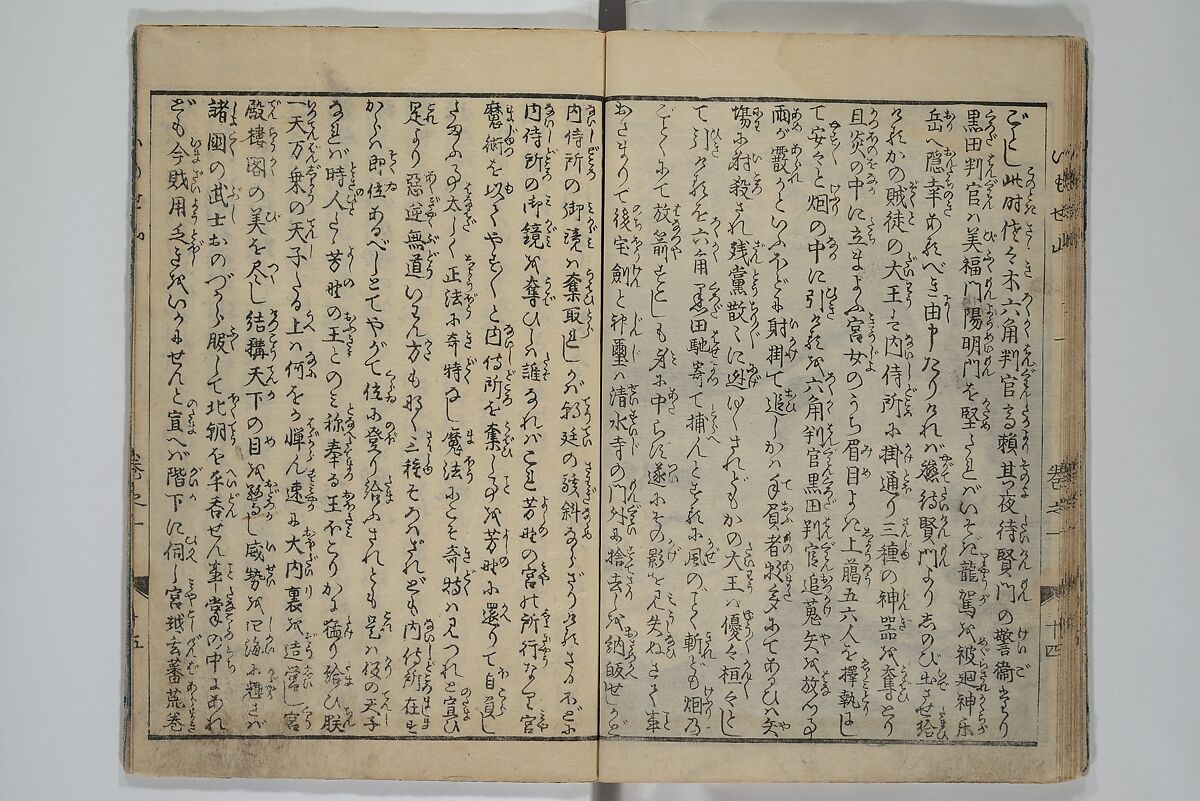 ごとし此時佐々木六角判官高頼其夜待賢門の警衛たり
黒田判官は美福門陽明門を堅たればいそぎ龍駕を被廻神楽
岳へ隠幸あるべき由申たりければ待賢門よりしのび出させ給
けるかの賊徒の大王して内侍所に掛通り三種の神器を奪とり
且炎の中に立まよふ宮女のうち眉目よき上﨟五六人を擇執し
て安々と畑の中に引けるを六角判官黒田判官追蒐矢を放つる
雨か霰かといふほどに射掛て追しかは手負者数多にてあるひは矢
場に射殺され残黨散々に迯ゆくされどもかの大王は優々桓々とし
て引けるを六角黒田馳寄て捕んとするに風のごとく斬ども烟の
ごとくにて放箭すこしも身に中らず遂にその影を見失ぬさて事
おさまりて後宝劍と神璽は清水寺の門外に捨去しを納皈せしが
内侍所の御鏡は奪取れしかば朝廷の騒斜ならざりけれさるほどに
内侍所の御鏡を奪ひしは誰なればこれ芳野の宮の所行なり宮
魔術を以てやす〱と内侍所を奪しめ芳野に還りて自負し
たまふ事太しく正法に奇特なし魔法にこそ奇特は見つれと宣ひ
是より惡逆無道いはん方も那く三種そろはざれども内侍所在せ
から八即位あるべしとてやがて位に登り給ふされとも是は仮の天子
なれば時人たゞ芳野の王とのみ称奉る王ほとりかに猛り給ひ朕
一天万乗の天子たる上は何をか憚ん速に大内裏を造営し宮
殿樓閣の美を尽し結構天下の目を驚し威勢を四海に輝さは
諸國の武士おのづから服して北朝を平呑せん事掌の中にあれ
ども今財用乏きをいかにせんと宣へば階下に伺し宮越玄蕃荒巻
いもせ山
巻之一
十四
巻之一
十五